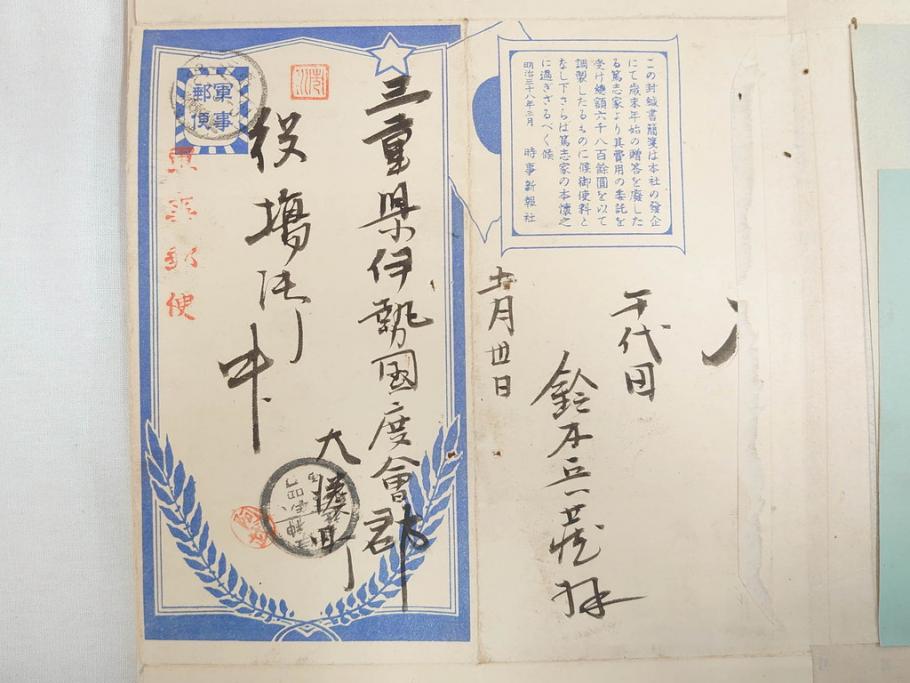 この封緘書簡箋は本社の發企
にて歳末年始の贈答を廢した
る篤志家より其費用の委託を
受け總額六千八百餘圓を以て
調製したるものに候御便料と
なし下さらは篤志家の本懐之
に過ぎざるべく候
明治三十八年三月 時事新報社
軍事
郵便
軍事郵便
三重県伊勢国度會郡
大湊町
役場御中
十一月廿日
千代田
鈴木